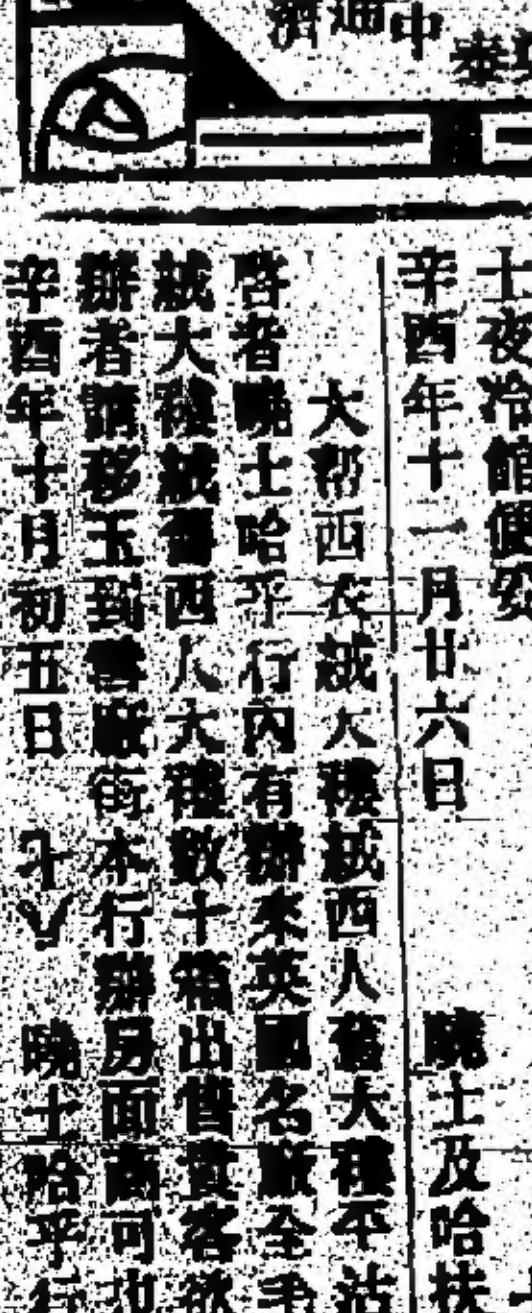 中通濟
泰
士夜冷館便
辛酉年十一月廿六日 曉士及哈扶
大帮西衣絨大褸絨西人舊大褸平沽
啓者曉士哈乎行內有辦來英國名廠全毛
絨大褸絨舊西人大褸數十箱出售貴客欲
辦者請移玉到雪廠街本行辦房面商可也
辛酉年十月初五日 曉士哈乎行